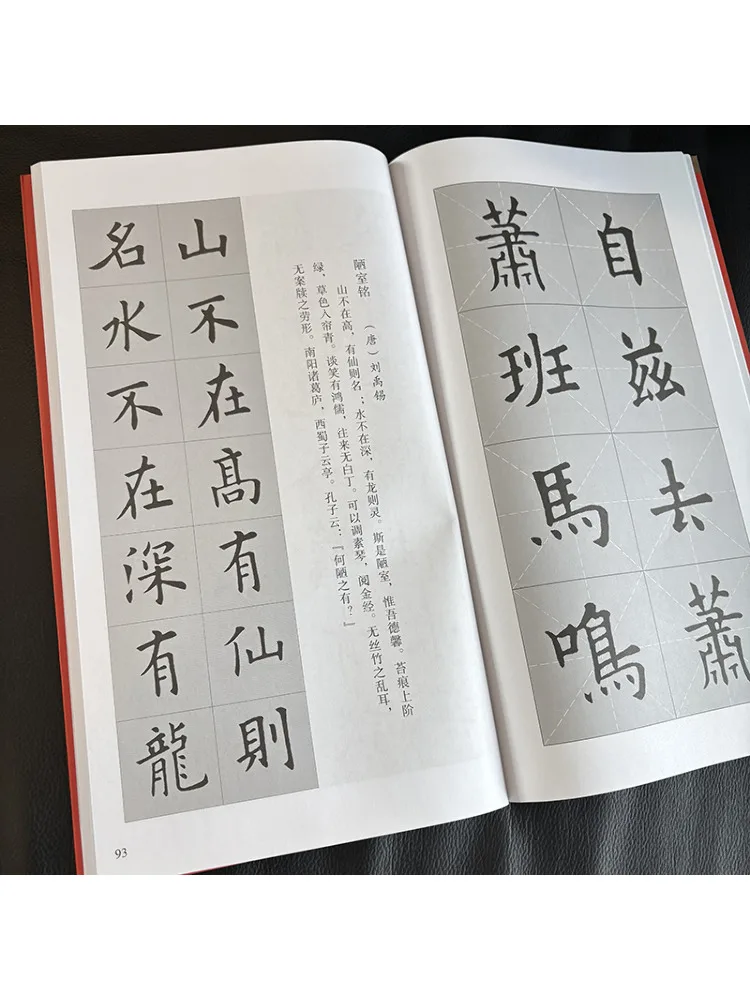 自兹去蕭
蕭班馬鳴
陋室铭 (唐)刘禹锡
山不在高,有仙则名;水不在深,有龙则灵。斯是陋室,惟吾德馨。苔痕上阶
绿,草色入帘青。谈笑有鸿儒,往来无白丁。可以调素琴,阅金经。无丝竹之乱耳,
无案牍之劳形。南阳诸葛庐,西蜀子云亭。孔子云:『何陋之有?』
山不在髙有仙則
名水不在深有龍
93